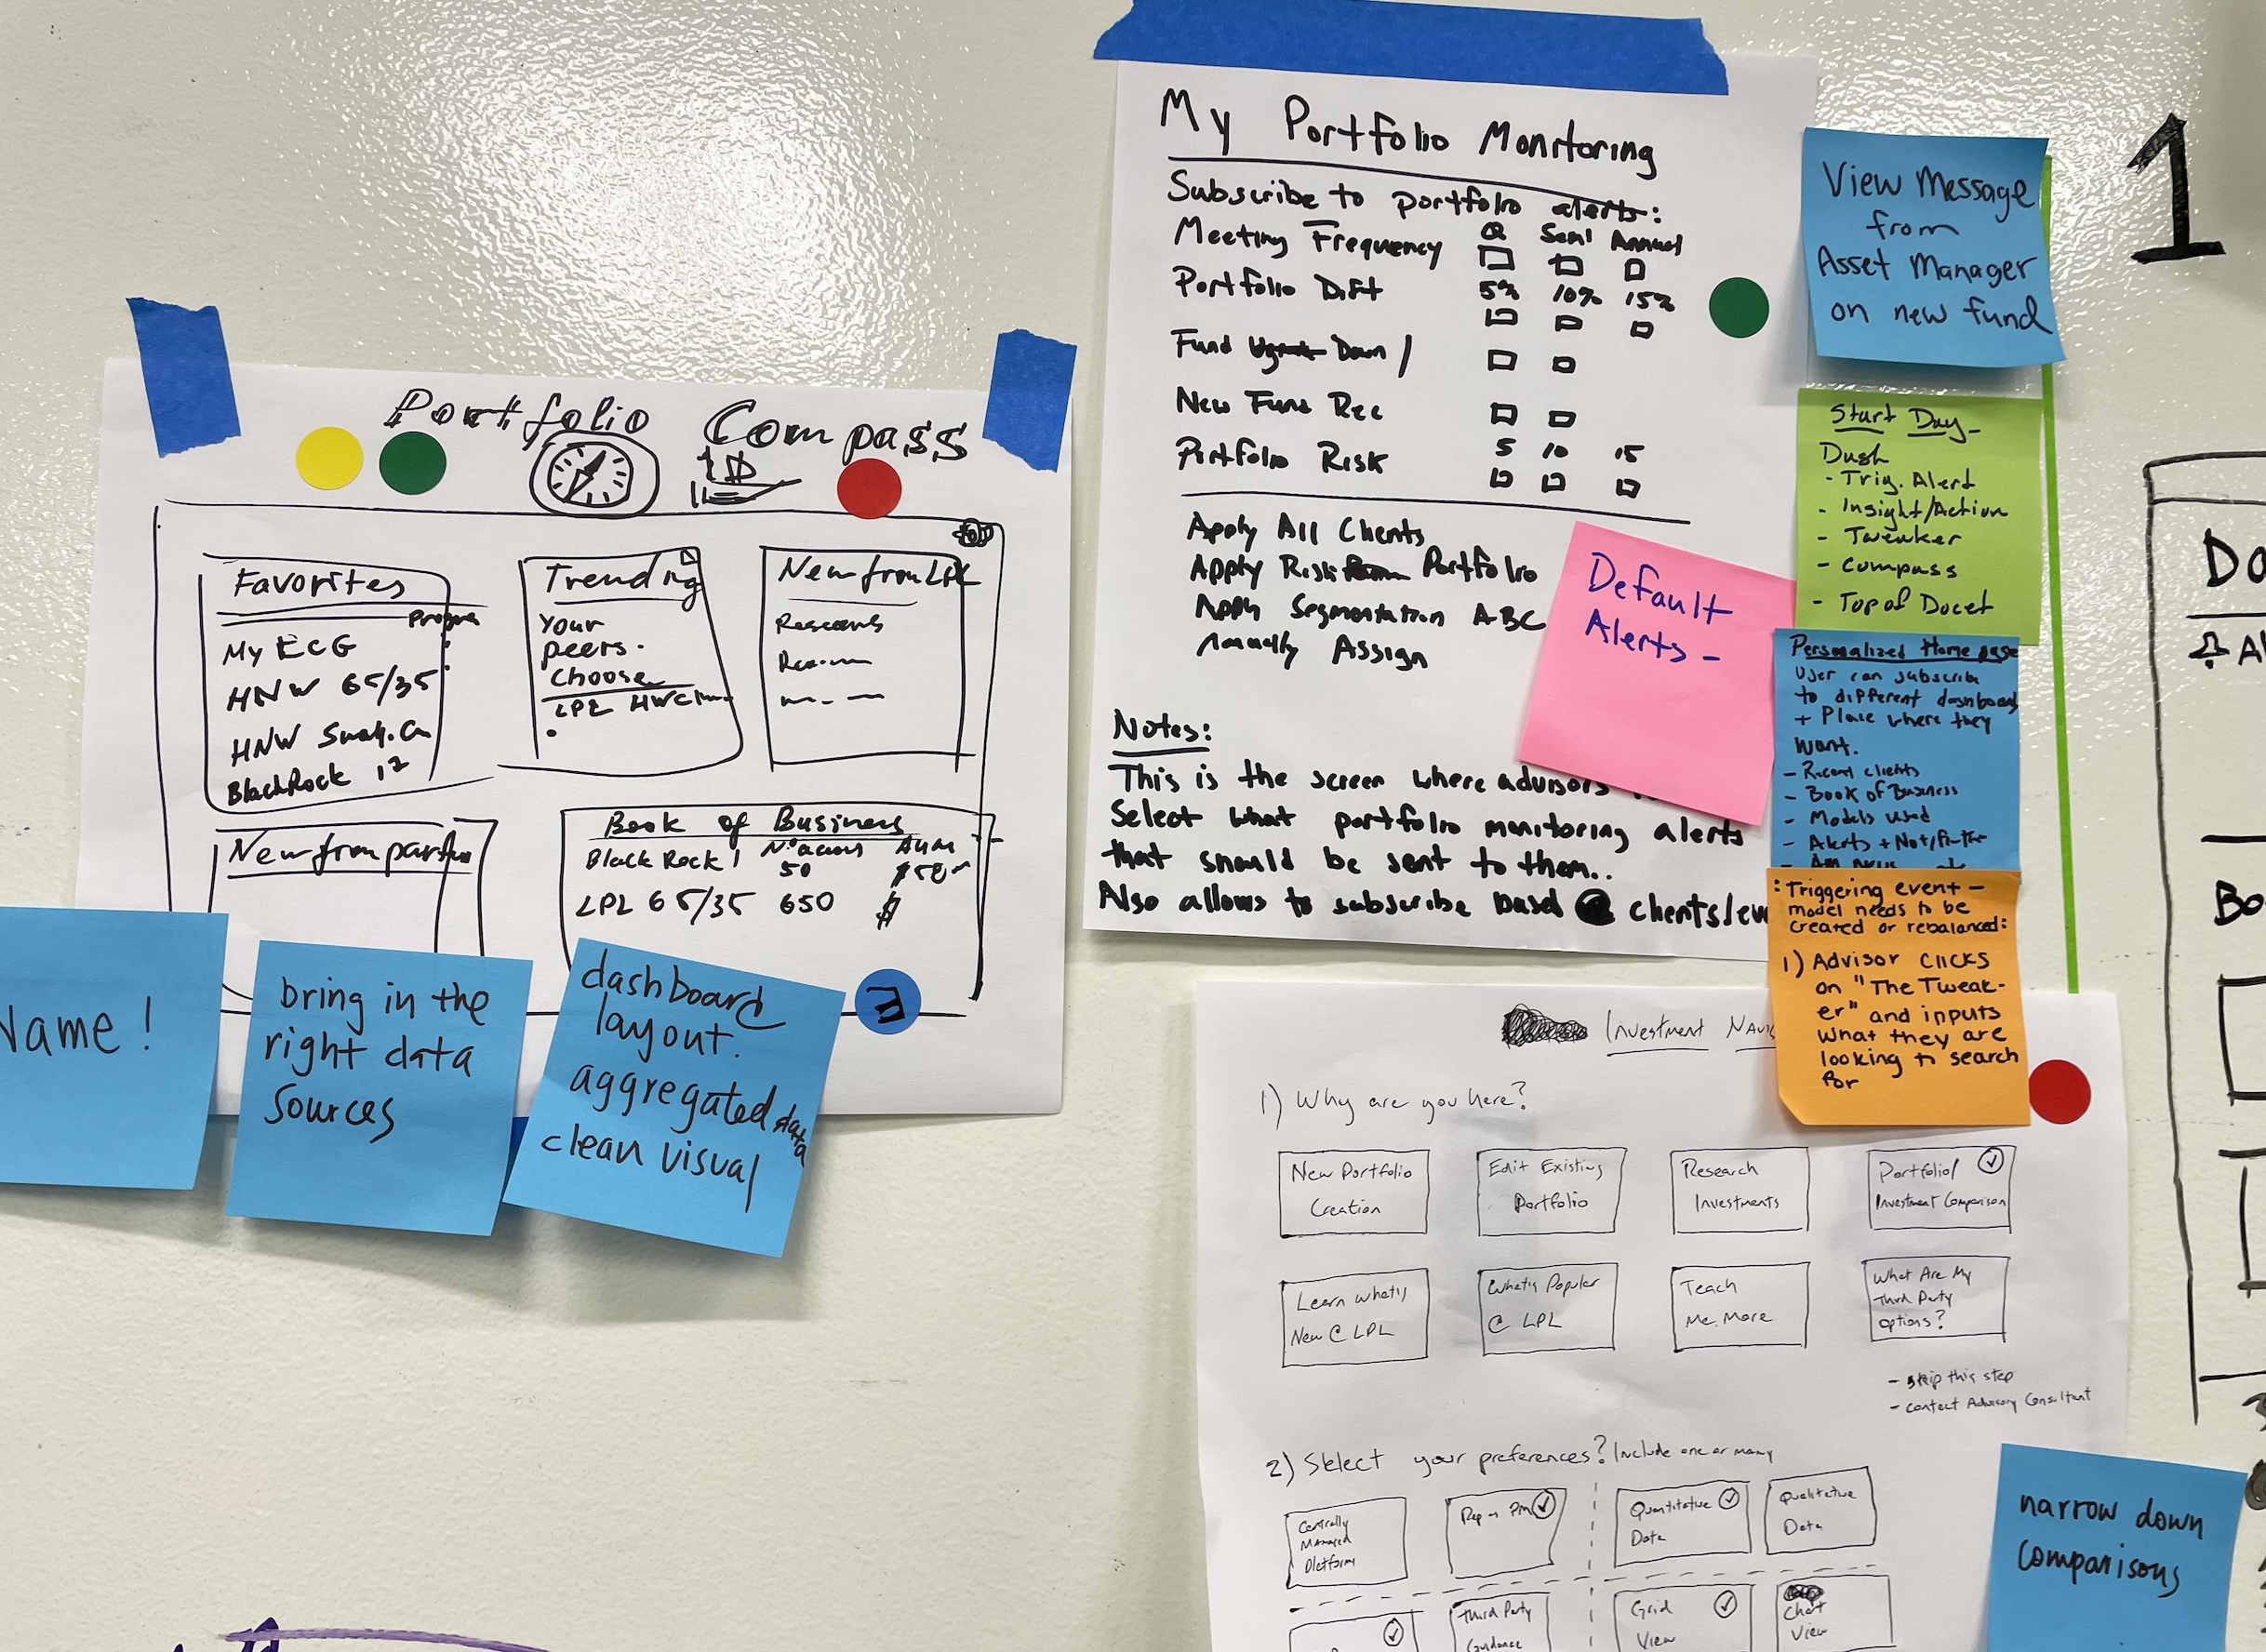 Portfolio Compass
Favorites
My ECG
HNW 65/35
HNW
BlackRock
Trending
Your
peers.
Choose
LPL
New from LPL
Research
New from
Book of Business
Black Rock 1
50
LPL 65/35 650 $
Name!
bring in the
right data
sources
dashboard
layout.
aggregated data
clean visual
3
My Portfolio Monitoring
Subscribe to portfolio alerts:
Meeting Frequency Q Semi Annual
Portfolio Drift 5% 10% 15%
Fund Down /
New Fund Rec
Portfolio Risk 5 10 15
Apply All Clients
Apply Risk Portfolio
Apply Segmentation ABC
Manually Assign
Notes:
This is the screen where advisors
Select what portfolio monitoring alerts
that should be sent to them..
Also allows to subscribe based @ clients/
Default
Alerts -
View Message
from
Asset Manager
on new fund
Start Day -
Dash
- Trig. Alert
- Insight/Action
- Tweaker
- Compass
- Top of Docet
Personalized Home page
User can subscribe
to different dashboard
+ Place where they
want.
- Recent clients
- Book of Business
- Models used
- Alerts +
: Triggering event -
model needs to be
created or rebalanced:
1) Advisor clicks
on "The Tweak-
er" and inputs
what they are
looking to search
for
Investment
1) Why are you here?
New Portfolio
Creation
Edit Existing
Portfolio
Research
Investments
Portfolio/
Investment Comparison
Learn what's
New @ LPL
What's Popular
@ LPL
Teach
Me More
What Are My
Third Party
Options?
- skip this step
- contact Advisory Consultant
2) Select your preferences? Include one or many
Centrally
Managed
Platforms
Rep as PM
Quantitative
Data
Qualitative
Data
Third Party
Guidance
Grid
View
Chart
View
narrow down
comparisons
1
Do
Bo